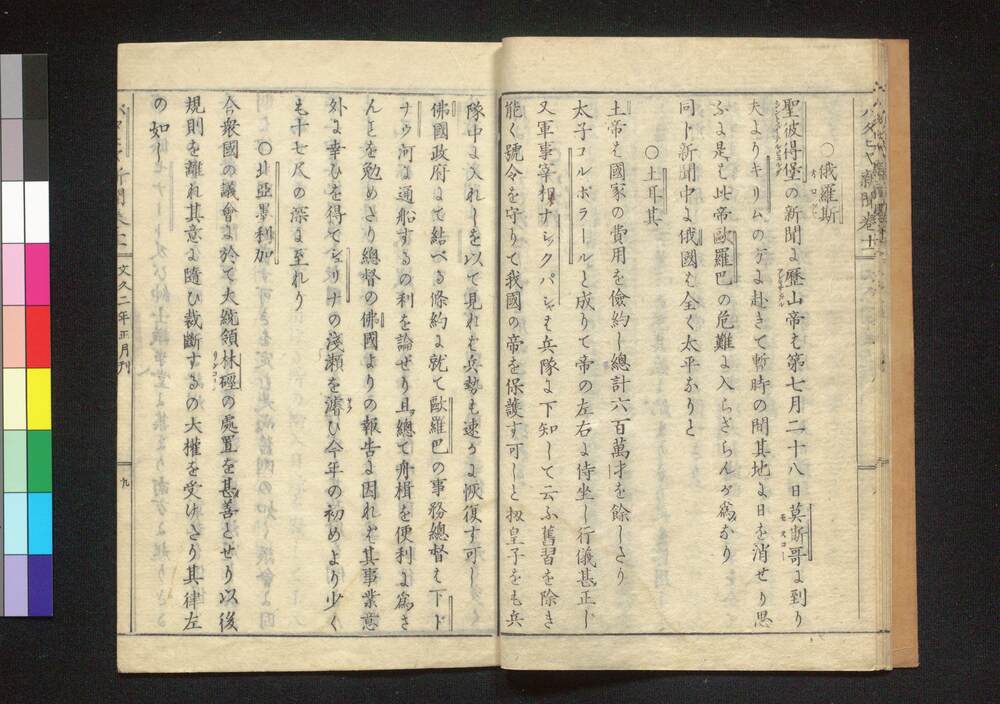 バタヒヤ新聞 巻十一
○俄羅斯
オロシヤ
聖彼得堡の新聞に歴山帝も第七月二十八日莫斯哥に到り
夫よりキリムの方に赴きて暫時の間其地に日を消せり思
ふに是も此帝歐羅巴の危難に入らざらんが為なり
同じ新聞中に俄國は全く太平なりと
○土耳其
土帝も國家の費用を儉約し總計六百萬才を餘しさり
太子コルポラールと成りて帝の左右に侍坐し行儀甚正し
又軍事宰相ナミックパシャも兵隊に下知して云ふ舊習を除き
能く號令を守りて我國の帝を保護す可しと扨皇子をも兵
隊中に入れしを以て見れも兵勢も速かに恢復す可し
佛國政府にて結べる條約に就て歐羅巴の事務總督も下ド
ナウ河に通船するの利を論ぜり且總て舟楫を便利に為さ
んとを勉めさり總督の佛國よりの報告に因れも其事業意
外に幸ひを得てシュリナの淺瀬を濬ひ今年の初めより少く
も十七尺の深に至れり
○北亞墨利加
合衆國の議會に於て大統領林硜の處置を甚善とせり以後
リンコーン
規則を離れ其意に隨ひ裁斷するの大權を受けさり其律左
の如し
バタヒヤ新聞 巻十一 文久二年正月刊 九